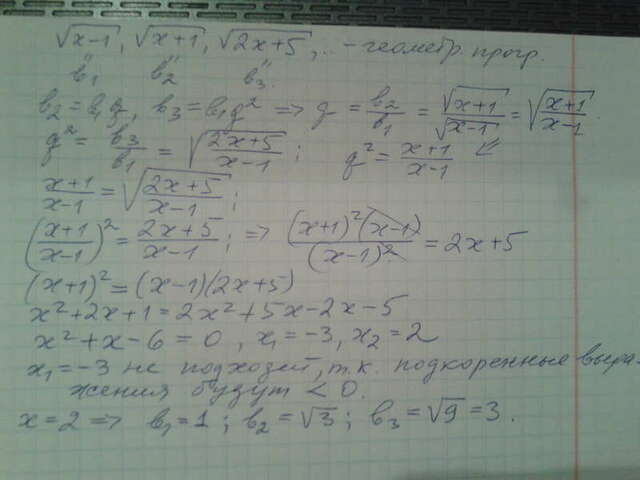 √(x-1), √(x+1), √(2x+5), ... - геометр. прогр.
b₁ b₂ b₃
b₂ = b₁q, b₃ = b₁q² => q = b₂/b₁ = √(x+1)/√(x-1) = √((x+1)/(x-1))
q² = b₃/b₁ = √((2x+5)/(x-1)); q² = (x+1)/(x-1) <=
(x+1)/(x-1) = √((2x+5)/(x-1));
((x+1)/(x-1))² = (2x+5)/(x-1); => (x+1)²(x-1)/(x-1)² = 2x+5
(x+1)² = (x-1)(2x+5)
x²+2x+1 = 2x²+5x-2x-5
x²+x-6 = 0, x₁=-3, x₂=2
x₁=-3 не подходит, т.к. подкоренные выра-
жения будут < 0.
x=2 => b₁=1; b₂=√3; b₃=√9=3.